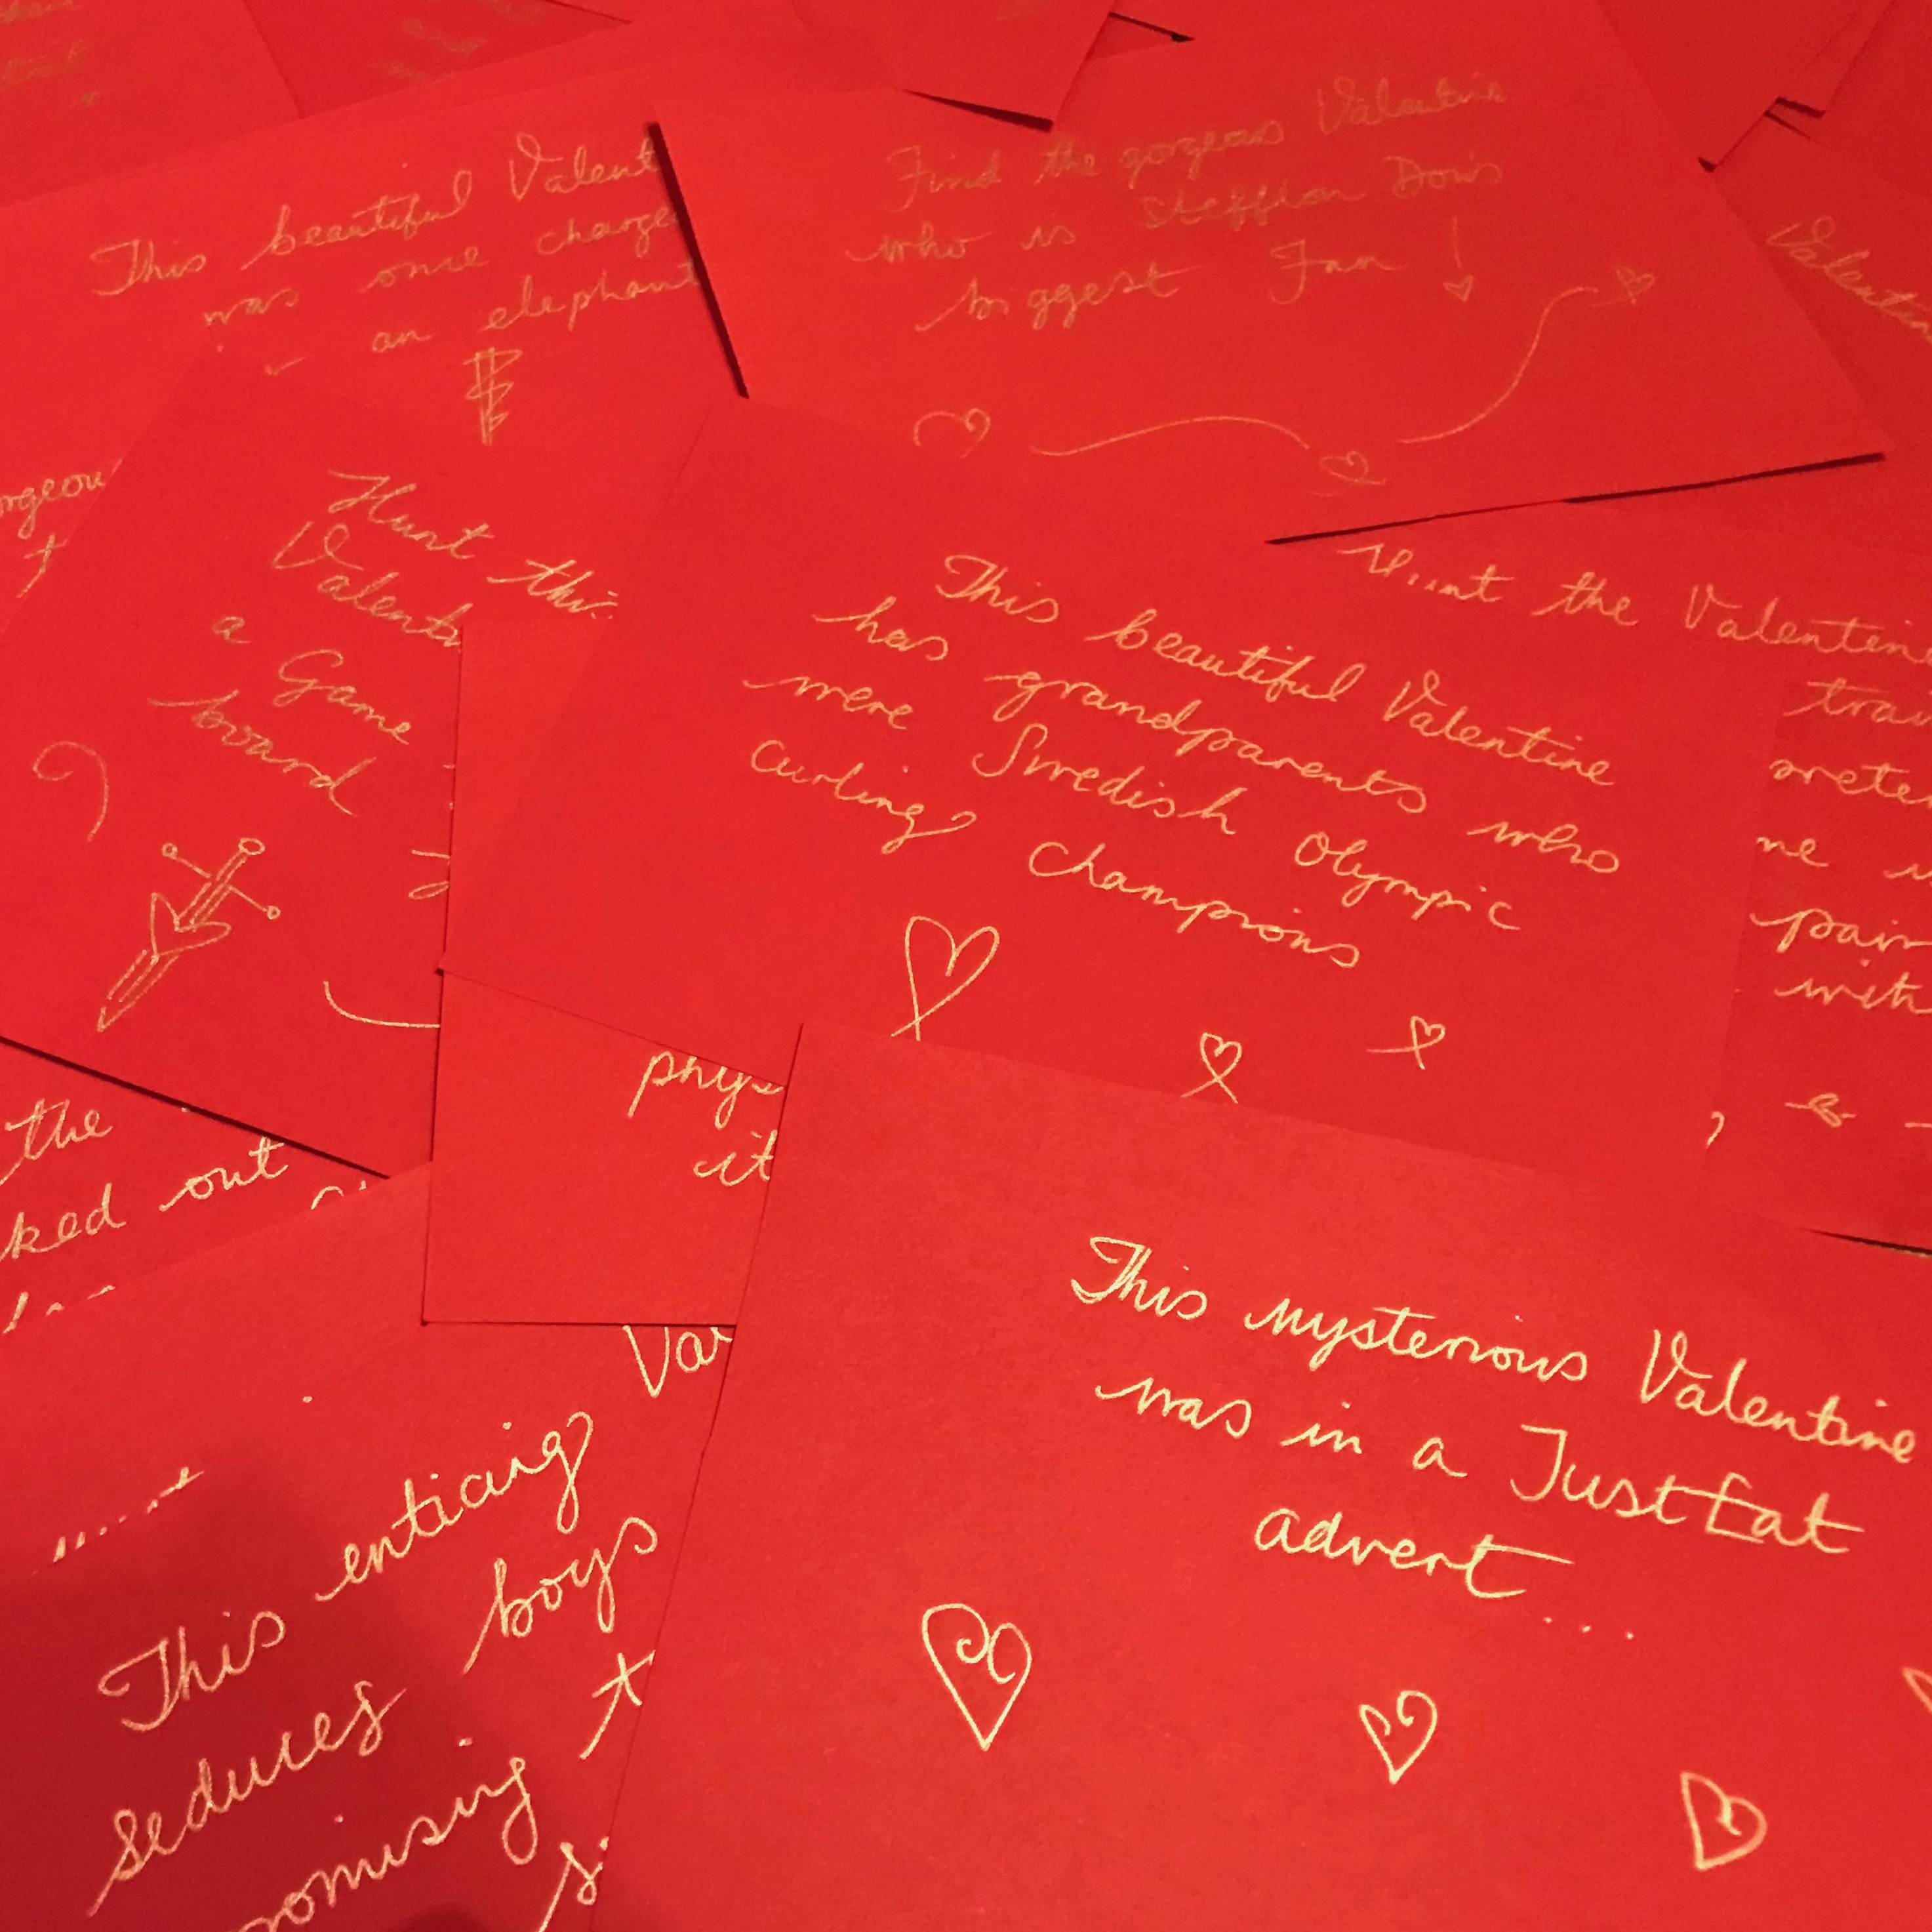 This beautiful Valent
was once charge
an elephant
Find the gorgeous Valentine
who is Stefflon Don's
biggest Fan!
Valentin
orgeou
Hunt this
Valenti
a Game
board
This beautiful Valentine
has grandparents who
were Swedish Olympic
Curling Champions
Hunt the Valentine
trav
prete
me
pain
with
the
ked out
phys
it
Val
This enticing
seduces boys
romising
si
This mysterious Valentine
was in a JustEat
advert...